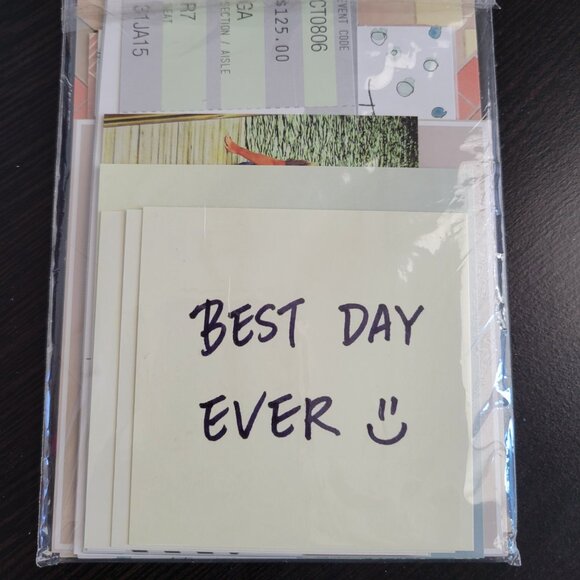 EVENT CODE
CT0806
$125.00
SECTION / AISLE
GA
R7
SEAT
31JA15
BEST DAY
EVER